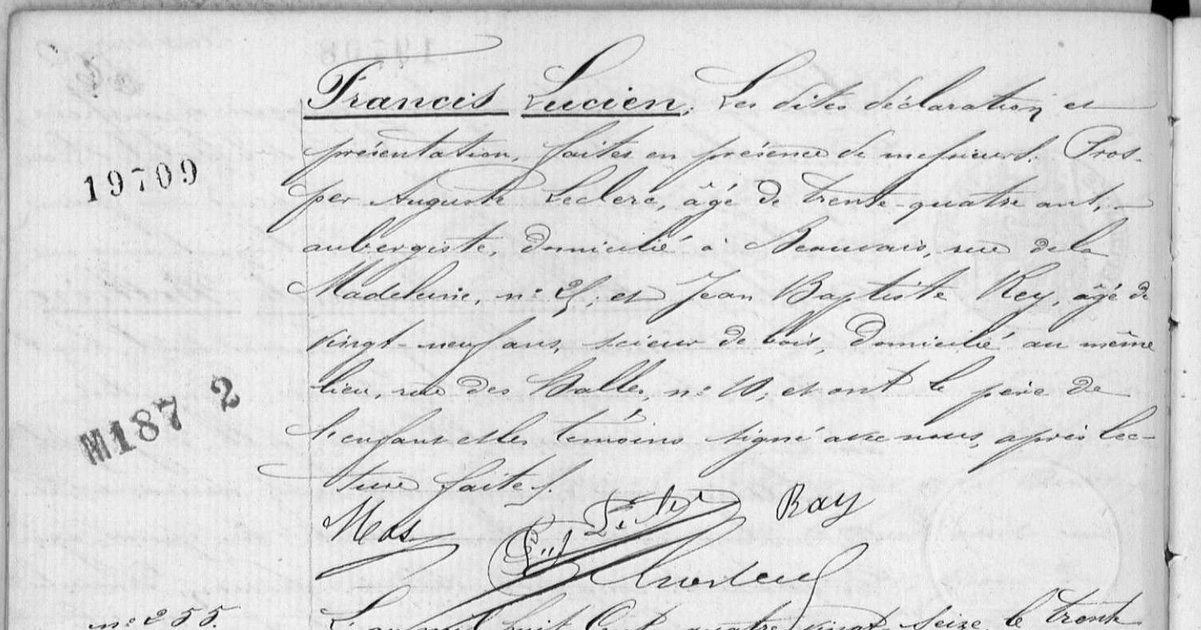 Francis Lucien. Les dites déclaration et
présentation, faites en présence de messieurs Pros-
19709
per Auguste Leclerc, âgé de trente-quatre ans,
aubergiste, domicilié à Beauvais, rue de la
Madeleine, n° et Jean Baptiste Rey, âgé de
vingt-neuf ans, scieur de bois, domicilié au même
lieu, rue des Halles, n° 10, et ont le père de
M187 2
l'enfant et les témoins signé avec nous, après lec-
ture faite.
Ray
n° 255.
L'an mil huit Cent quatre vingt seize le trente